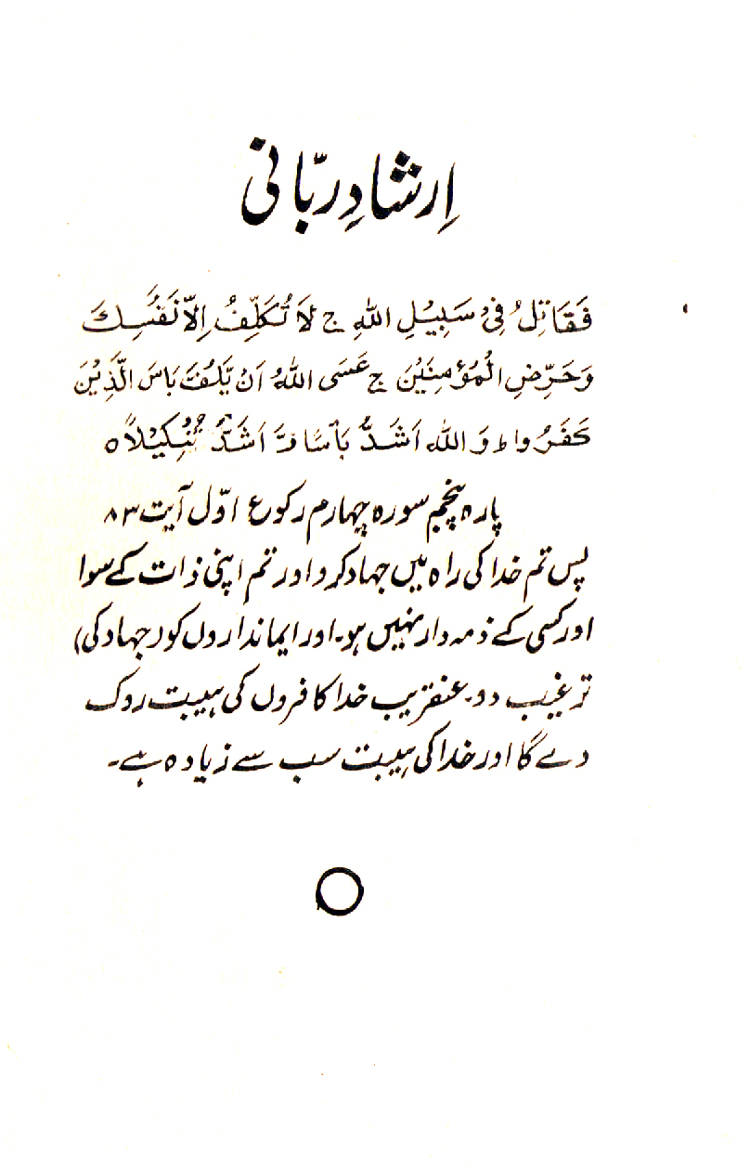 اِرشادِ ربّانی
فَقَاتِلُ فِیْ سَبِیْلِ اللهِ ج لَا تُکَلِّفُ اِلّا نَفْسِكَ
وَحَرِّضِ الْمُؤمِنِیْنَ ج عَسَی اللهُ اَنْ یَّکُفَّ بَاسَ الَّذِیْنَ
کَفَرُوا ط وَ اللهُ اَشَدُّ بَأسًا وَّ اَشَدُّ تَنْکِیْلًا ○
پارہ پنجم سورہ چہارم رکوع اوّل آیت ۸۳
پس تم خدا کی راہ میں جہاد کرو اور تم اپنی ذات کے سوا
اور کسی کے ذمہ دار نہیں ہو۔ اور ایمانداروں کو (جہاد کی)
ترغیب دو۔ عنقریب خدا کافروں کی ہیبت روک
دے گا اور خدا کی ہیبت سب سے زیادہ ہے۔